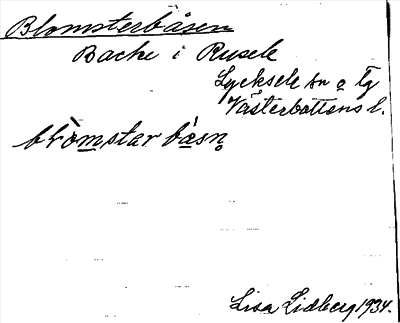 Blomsterbåsen
Backe i Rusele
Lycksele sn o tg
Västerbottens l.
blòmstar bàsn̥
Lisa Lidberg 1934.